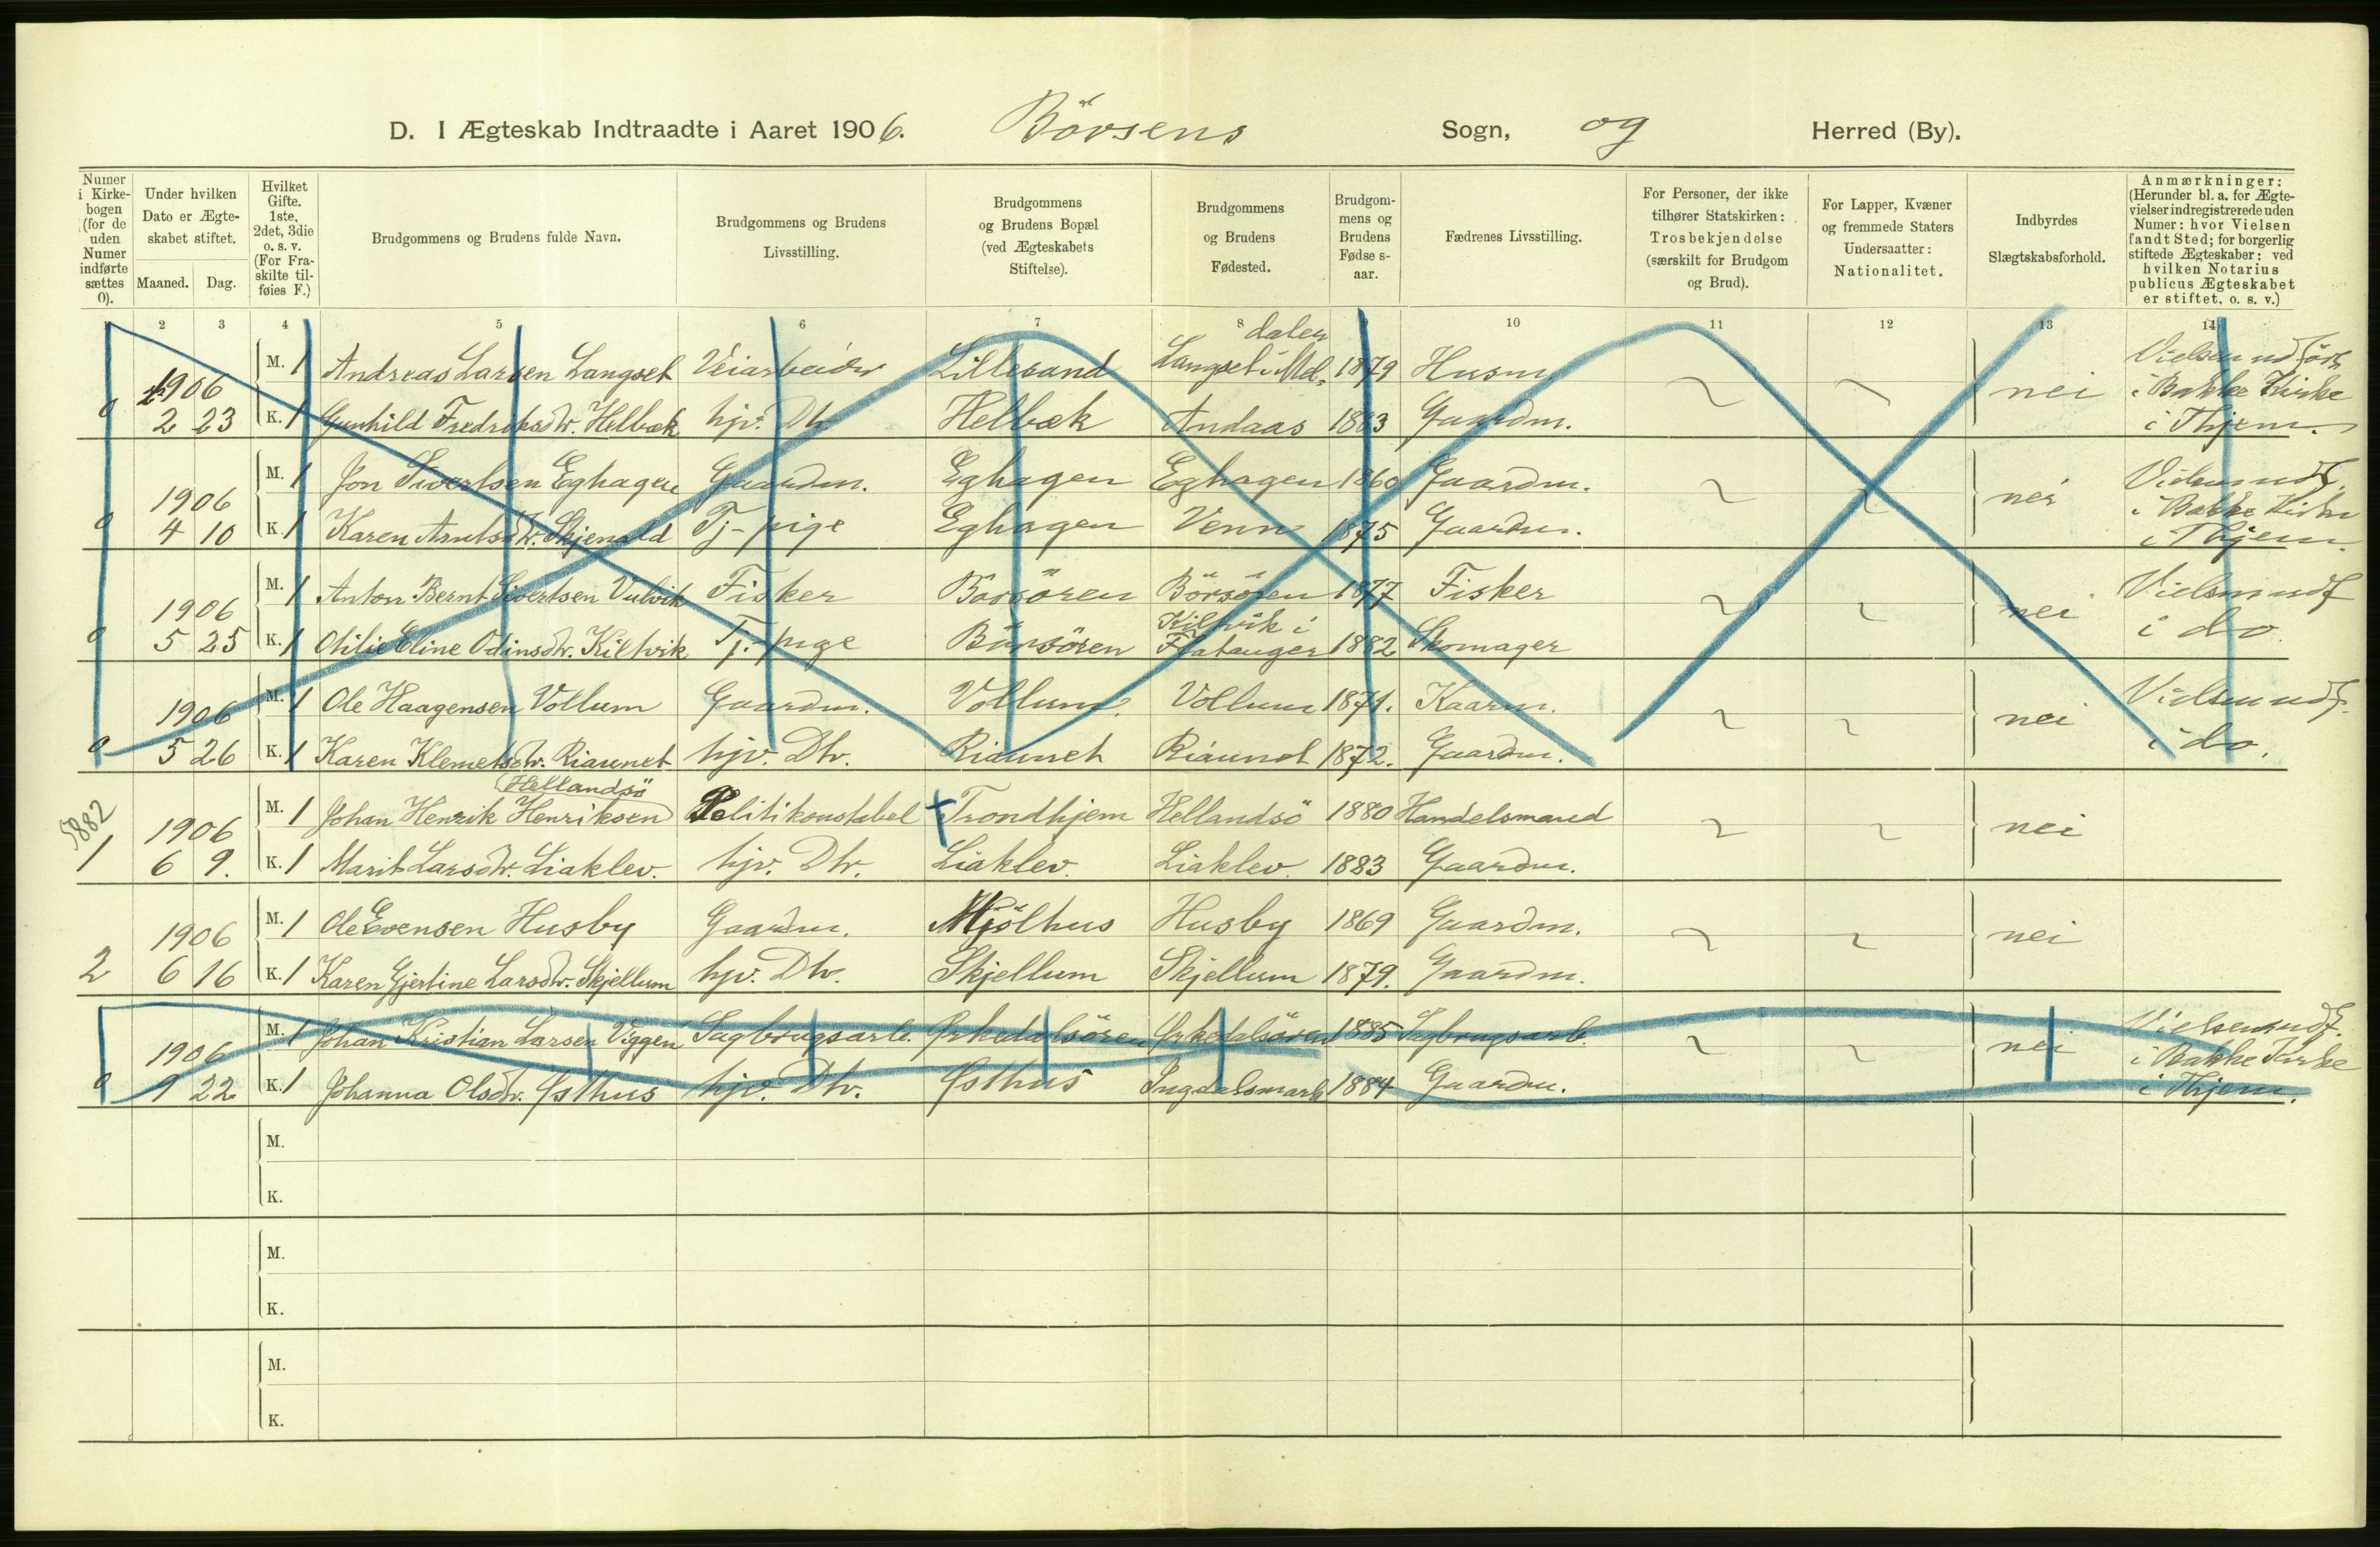 D. I Ægteskab Indtraadte i Aaret 1906. Börsens Sogn, og Herred (By).
Numer i Kirkebogen (for de uden Numer indførte sættes 0).
Under hvilken Dato er Ægteskabet stiftet.
Maaned. Dag.
Hvilket Gifte. 1ste, 2det, 3die o. s. v. (For Fraskilte tilføies F.)
Brudgommens og Brudens fulde Navn.
Brudgommens og Brudens Livsstilling.
Brudgommens og Brudens Bopæl (ved Ægteskabets Stiftelse).
Brudgommens og Brudens Fødested.
Brudgommens og Brudens Fødse s-aar.
Fædrenes Livsstilling.
For Personer, der ikke tilhører Statskirken: Trosbekjendelse (særskilt for Brudgom og Brud).
For Lapper, Kvæner og fremmede Staters Undersaatter: Nationalitet.
Indbyrdes Slægtskabsforhold.
Anmærkninger: (Herunder bl. a. for Ægtevielser indregistrerede uden Numer: hvor Vielsen fandt Sted; for borgerlig stiftede Ægteskaber: ved hvilken Notarius publicus Ægteskabet er stiftet, o. s. v.)
2 3 4 5 6 7 8 10 11 12 13 14
1906 M. 1 Andreas Larsen Langset Veiarbeider Lillesand Langset i Mel.dalen 1879 Husm. nei Vielsen udført
0 2 23 K. 1 Gunhild Fredriksdtr. Helbæk hjv. Dtr. Helbæk Andaas 1883 Gaardm. i Bakke Kirke
i Thjem.
1906 M. 1 Jon Sivertsen Eghagen Gaardm. Eghagen Eghagen 1860 Gaardm. nei Vielsen udf.
0 4 10 K. 1 Karen Arntsdtr. Skjenald Tj-pige Eghagen Venn 1875 Gaardm. i Bakke Kirke
i Thjem.
1906 M. 1 Anton Bernt Sivertsen Vulvik Fisker Börsören Börsören 1877 Fisker nei Vielsen udf
0 5 25 K. 1 Otilie Eline Odinsdtr. Kilvik Tj.-pige Börsören Kilvik i Flatanger 1882 Skomager i do.
1906 M. 1 Ole Haagensen Vollum Gaardm. Vollum Vollum 1871. Kaarm. nei Vielsen udf.
0 5 26 K. 1 Karen Klemetsdtr. Riaunet hjv. Dtr. Riaunet Riaunet 1872. Gaardm. i do.
5882
(Hellandsö
1906 M. 1 Johan Henrik Henriksen) Politikonstabel Trondhjem Hellandsö 1880 Handelsmand nei
1 6 9. K. 1 Marit Larsdtr. Liaklev. hjv. Dtr. Liaklev. Liaklev. 1883 Gaardm.
1906 M. 1 Ole Evensen Husby Gaardm. Mjölhus Husby 1869 Gaardm. nei
2 6 16 K. 1 Karen Gjertine Larsdtr. Skjellum hjv. Dtr. Skjellum Skjellum 1879. Gaardm.
1906 M. 1 Johan Kristian Larsen Viggen Sagbrugsarb. Ørkedalsören Ørkedalsören 1885 Sagbrugsarb. nei Vielsen udf.
0 9 22 K. 1 Johanna Olsdtr. Østhus hjv. Dtr. Østhus Ingdalsmark 1884 Gaardm. i Bakke Kirke
i Thjem.
M.
K.
M.
K.
M.
K.